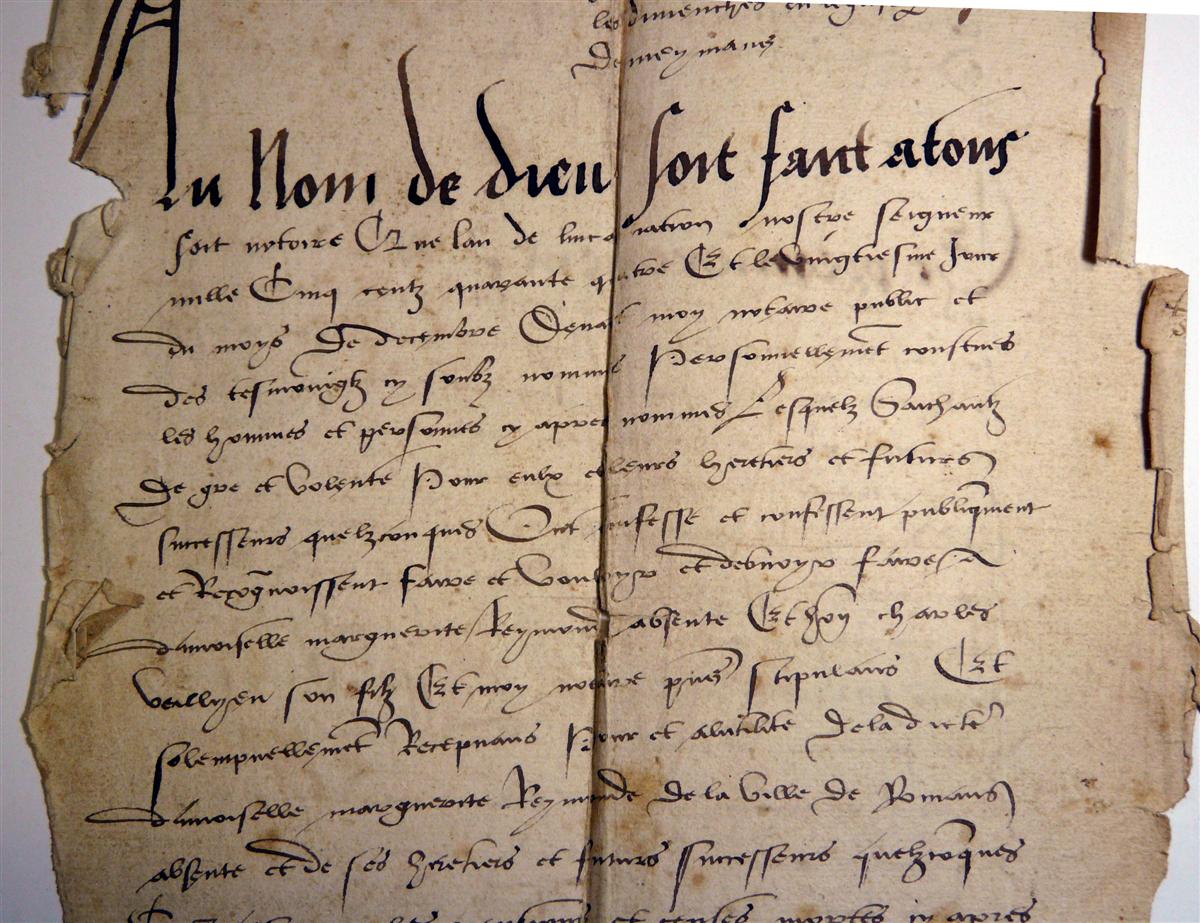 les dimenches en
De meymans
Au Nom de dieu soit faict atous
soit notoire Que lan de lincarnation nostre seigneur
mille Cinq centz quarante quatre Et le vingtiesme Jour
du moys De decembre Devant moy notaire public et
des tesmoingtz cy soubz nommes Personnellemet constitues
les hommes et personnes cy apres nommes Lesquelz Saichantz
De gre et volente Pour eulx et leurs heretiers et futurs
successeurs quelzconques Ont confesse et confessent publiqment
et Recognoissent faire et voulloyr et debvoyr faire A
damoiselle marguerite Reymond absente Et charles
veillyeu son filz Et moy notaire pns stipulans Et
solempnellemet Recepvans Pour et alutilite De la dicte
damoiselle marguerite Reymonde de la ville de Romans
absente et de ses heretiers et futurs successeurs quelzcoques
et censes cy apres